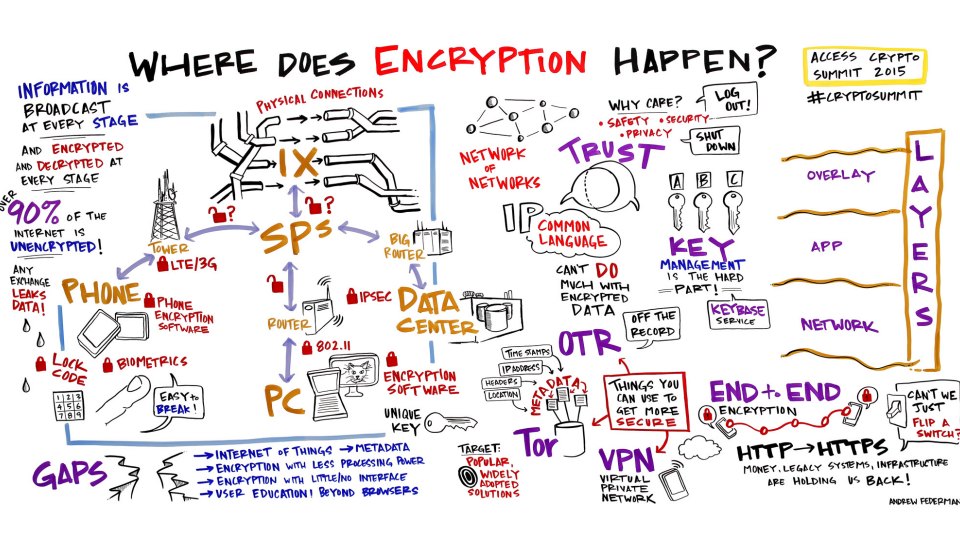 WHERE DOES ENCRYPTION HAPPEN?
ACCESS CRYPTO
SUMMIT 2015
#CRYPTOSUMMIT
INFORMATION IS
BROADCAST
AT EVERY STAGE
AND ENCRYPTED
AND DECRYPTED AT
EVERY STAGE
OVER
90% OF THE
INTERNET IS
UNENCRYPTED!
ANY
EXCHANGE
LEAKS
DATA!
PHYSICAL CONNECTIONS
IX
?
?
SPs
TOWER
LTE/3G
BIG
ROUTER
PHONE
PHONE
ENCRYPTION
SOFTWARE
ROUTER
IPSEC
DATA
CENTER
802.11
LOCK
CODE
1 2 3
4 5 6
7 8 9
BIOMETRICS
EASY to
BREAK!
PC
ENCRYPTION
SOFTWARE
UNIQUE
KEY
GAPS
→ INTERNET OF THINGS → METADATA
→ ENCRYPTION WITH LESS PROCESSING POWER
→ ENCRYPTION WITH LITTLE/NO INTERFACE
→ USER EDUCATION! BEYOND BROWSERS
NETWORK
OF
NETWORKS
WHY CARE?
• SAFETY • SECURITY
• PRIVACY
LOG
OUT!
SHUT
DOWN
TRUST
IP
COMMON
LANGUAGE
CAN'T DO
MUCH WITH
ENCRYPTED
DATA
A B C
KEY
MANAGEMENT
IS THE HARD
PART!
KEYBASE
SERVICE
OFF THE
RECORD
OTR
TIME STAMPS
IP ADDRESS
HEADERS
LOCATION
METADATA
Tor
TARGET:
POPULAR,
WIDELY
ADOPTED
SOLUTIONS
THINGS YOU
CAN USE TO
GET MORE
SECURE
VPN
VIRTUAL
PRIVATE
NETWORK
OVERLAY
APP
NETWORK
LAYERS
END to END
ENCRYPTION
CAN'T WE
JUST
FLIP A
SWITCH?
HTTP → HTTPS
MONEY, LEGACY SYSTEMS, INFRASTRUCTURE
ARE HOLDING US BACK!
ANDREW FEDERMAN